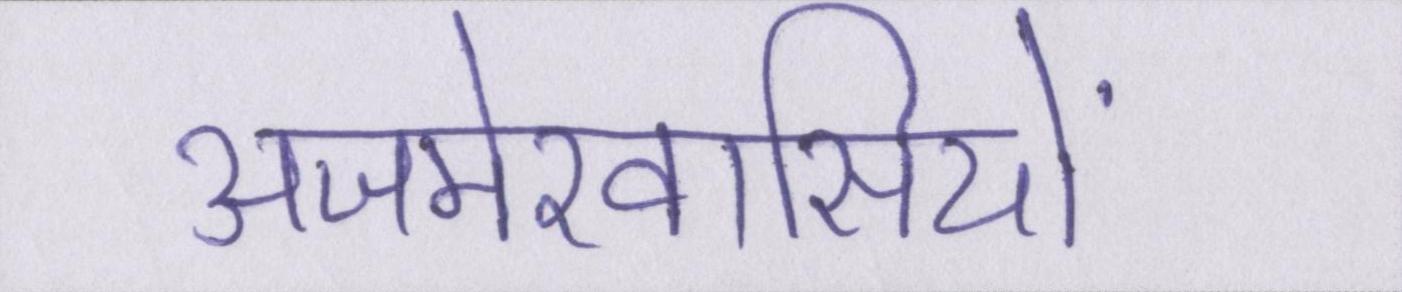 अजमेरवासियों